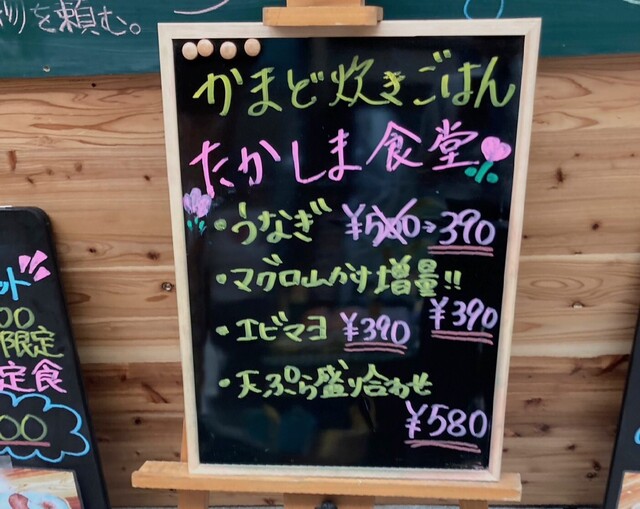 を頼む。
かまど炊きごはん
たかしま食堂
・うなぎ ¥500→390
・マグロ山かけ増量!!
¥390
・エビマヨ ¥390
・天ぷら盛り合わせ
¥580
ット
00
限定
定食
00